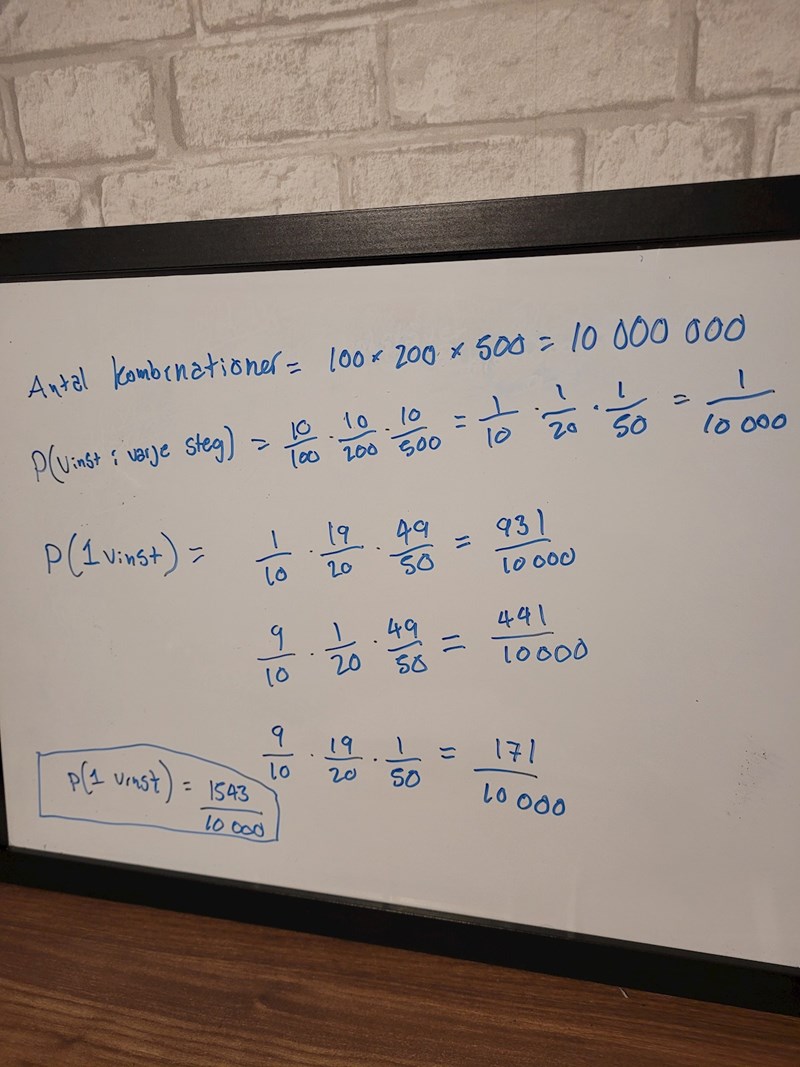 Antal kombinationer = 100 × 200 × 500 = 10 000 000
P(vinst i varje steg) = 10/100 · 10/200 · 10/500 = 1/10 · 1/20 · 1/50 = 1/10 000
P(1 vinst) = 1/10 · 19/20 · 49/50 = 931/10 000
9/10 · 1/20 · 49/50 = 441/10000
9/10 · 19/20 · 1/50 = 171/10 000
P(1 vinst) = 1543/10 000